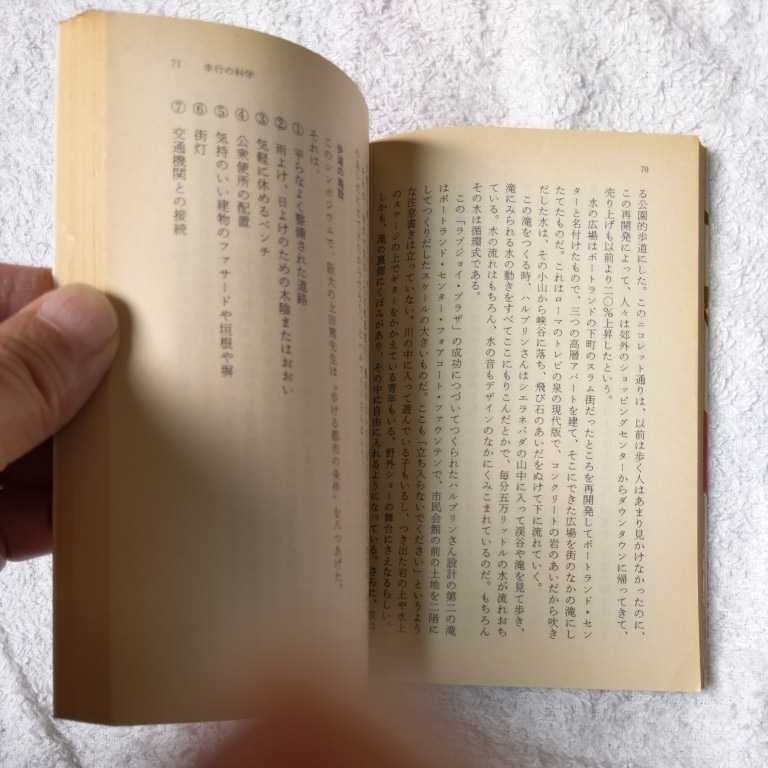 70
る公園的歩道にした。このニコレット通りは、以前は歩く人はあまり見かけなかったのに、
この再開発によって、人々は郊外のショッピングセンターからダウンタウンに帰ってきて、
売り上げも以前より二〇%上昇したという。
水の広場はポートランドの下町のスラム街だったところを再開発してポートランド・セン
ターと名付けたもので、三つの高層アパートを建て、そこにできた広場を街のなかの滝にし
たてたものだ。これはローマのトレビの泉の現代版で、コンクリートの岩のあいだから吹き
だした水は、その小山から峡谷に落ち、飛び石のあいだをぬけて下に流れていく。
この滝をつくる時、ハルプリンさんはシエラネバダの山中に入って渓谷や滝を見て歩き、
滝にみられる水の動きをすべてここにもりこんだとかで、毎分五万リットルの水が流れおち
ている。水の流れはもちろん、水の音もデザインのなかにくみこまれているのだ。もちろん
その水は循環式である。
この「ラブジョイ・プラザ」の成功につづいてつくられたハルプリンさん設計の第二の滝
はポートランド・センター・フォアコート・ファウンテンで、市民会館の前の土地を二階に
してつくりだしたスケールの大きいものだ。ここも「立ち入らないでください」というよう
な注意書きは立っていない。川の中に入って遊んでいる子もいるし、つき出た岩の上や水上
のステージの上でギターをかかえている青年もいる。野外ショーの舞台にさえなるらしい。
しかも、滝の裏側にくぼみがあり、その中に自由に入れるようになっている。さらに、
71
歩行の科学
歩道の施設
このシンポジウムで、阪大の上田篤先生は"歩ける都市の条件"を八つあげた。
それは、
① 平らなよく整備された道路
② 雨よけ、日よけのための木陰またはおおい
③ 気軽に休めるベンチ
④ 公衆便所の配置
⑤ 気持のいい建物のファサードや垣根や塀
⑥ 街灯
⑦ 交通機関との接続